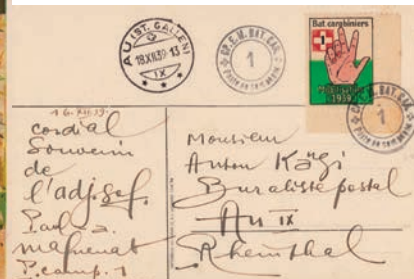 AU (ST. GALLEN)
18.XII.39-13
IX
CP. E. M. BAT. CAR.
1
Poste de campagne
Bat carabiniers
1
1939
CP. E. M. BAT. CAR.
1
Poste de campagne
16.XII.39.
cordial
Souvenir
de
l'adj. sof.
Monsieur
Anton Kägi
Buraliste postal
Au IX
Rheinthal
P. camp. 1